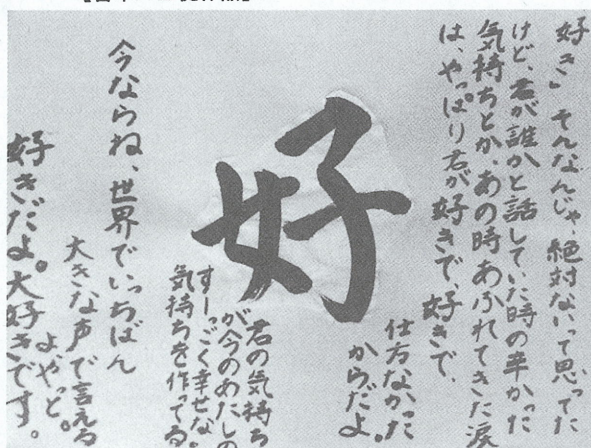 好き」そんなんじゃ、絶対ないって思ってた
けど、君が誰かと話していた時の辛かった
気持ちとか、あの時あふれてきた涙
は、やっぱり君が好きで、好きで、
仕方なかった
からだよ
好
君の気持ち
が今のあたしの
すーっごく幸せな。
気持ちを作ってる
今ならね、世界でいっちばん
大きな声で言える
よやっと。
好きだよ。大好きです。